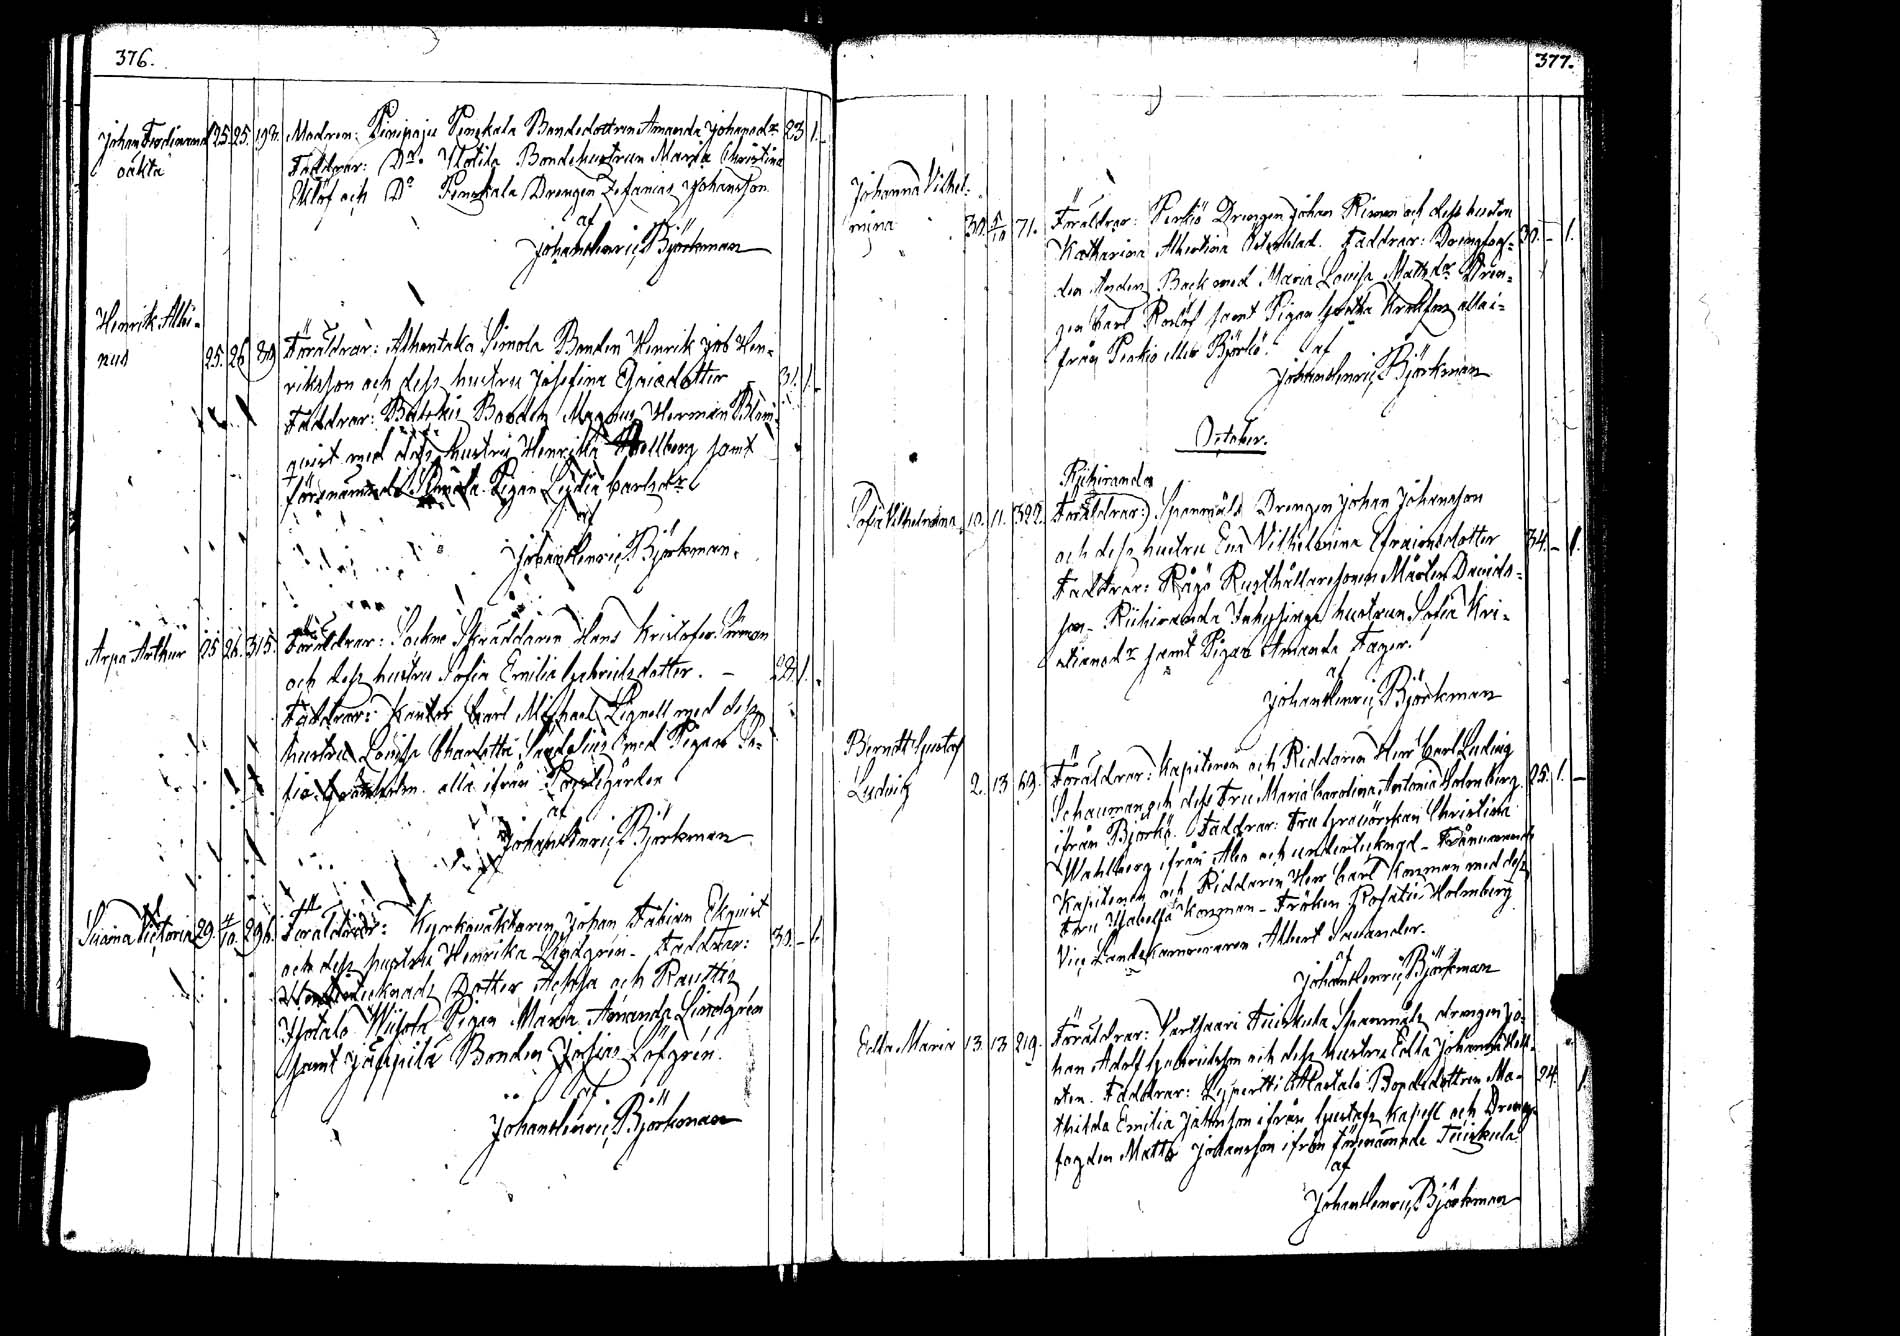 376.
Johan Ferdinand 25. 25. 192. Modren: Pinipaju Penskala Bondedottren Amanda Johansdr 23 1. -
oäkta Faddrar: Do Ylötila Bondehustrun Maria Christina
Eklöf och Do Penskala Drengen Zefanias Johansson
af
Johan Henric Björkman
Henrik Albi-
nus 25. 26 89 Föräldrar: Alhontaka Simola Bonden Henrik Job Hen-
riksson och dess hustru Josefina Esaiædotter 31. 1. -
Faddrar: Bonden Magnus Herman Blom-
quist med dess hustru Henrika Hellberg samt
förenämnde Simola Pigan Lydia Carlsdr
af
Johan Henric Björkman.
Arpa Arthur 25 26. 315. Föräldrar: Sockne Skräddaren Hans Kristofer
och dess hustru Sofia Emilia Gabrielsdotter. - 28. 1. -
Faddrar: Kantor Carl Michael Lignell med dess
hustru Lovisa Charlotta med Pigan So-
fia Granholm. alla ifrån Prestgården
af
Johan Henric Björkman
Victoria 29. 4/10. 296. Föräldrar: Kyrkovaktaren Johan Fabian Ekqvist 30. - 1.
och dess hustru Henrika Lindgrén. Faddrar:
Undertecknads Dotter och
Pigan Maria Amanda Lindgrén
samt Jäppilä Bonden Josias Löfgrén.
af
Johan Henric Björkman
377.
Johanna Vilhel-
mina 30. 5/10 71. Föräldrar: Perkiö Drengen Johan Rinnen och dess hustru
Katharina Albertina Österblad. Faddrar: Drengfog- 30. - 1.
den Anders Back med Maria Lovisa Mattsdr Dren-
gen Carl Roslöf samt Pigan alla i-
från Perkiö eller Björkö. af
Johan Henric Björkman
October.
Riihiranda
Sofia Vilhelmina 10. 11. 322. Föräldrar: Spanmåls Drengen Johan Johansson
och dess hustru Eva Vilhelmina Efraimsdotter 34. - 1.
Faddrar: Rågö Rusthållaresonen Mårten Davids-
son - Riihiranda Inhysinge hustrun Sofia Kri-
stiansdr samt Pigan Amanda Fager.
af
Johan Henric Björkman
Berndt Gustaf
Ludvig 2. 13 69. Föräldrar: Kapitenen och Riddaren Herr Carl Ludvig
Schauman och dess Fru Maria Carolina Antonia Holmberg 25. 1. -
ifrån Björkö. Faddrar: Fru Gravörskan Christina
Wahlberg ifrån Åbo och undertecknad - Frånvarande
Kapitenen och Riddaren Herr Carl Konman med dess
Fru Isabella Konman - Fröken Rosalie Holmberg
Vice Landskamreraren Albert Savander.
af
Johan Henric Björkman
Edla Maria 13. 13 219. Föräldrar: Vartsaari Tuiskula Spanmåls drengen Jo-
han Adolf Gabrielsson och dess hustru Edla Johanna Hell-
sten. Faddrar: Lypertti Alastalo Bondedottren Ma- 24. 1.
thilda Emilia Johnsson ifrån Gustafs Kapell och Dreng-
fogden Matts Johansson ifrån förenämnde Tuiskula
af
Johan Henric Björkman